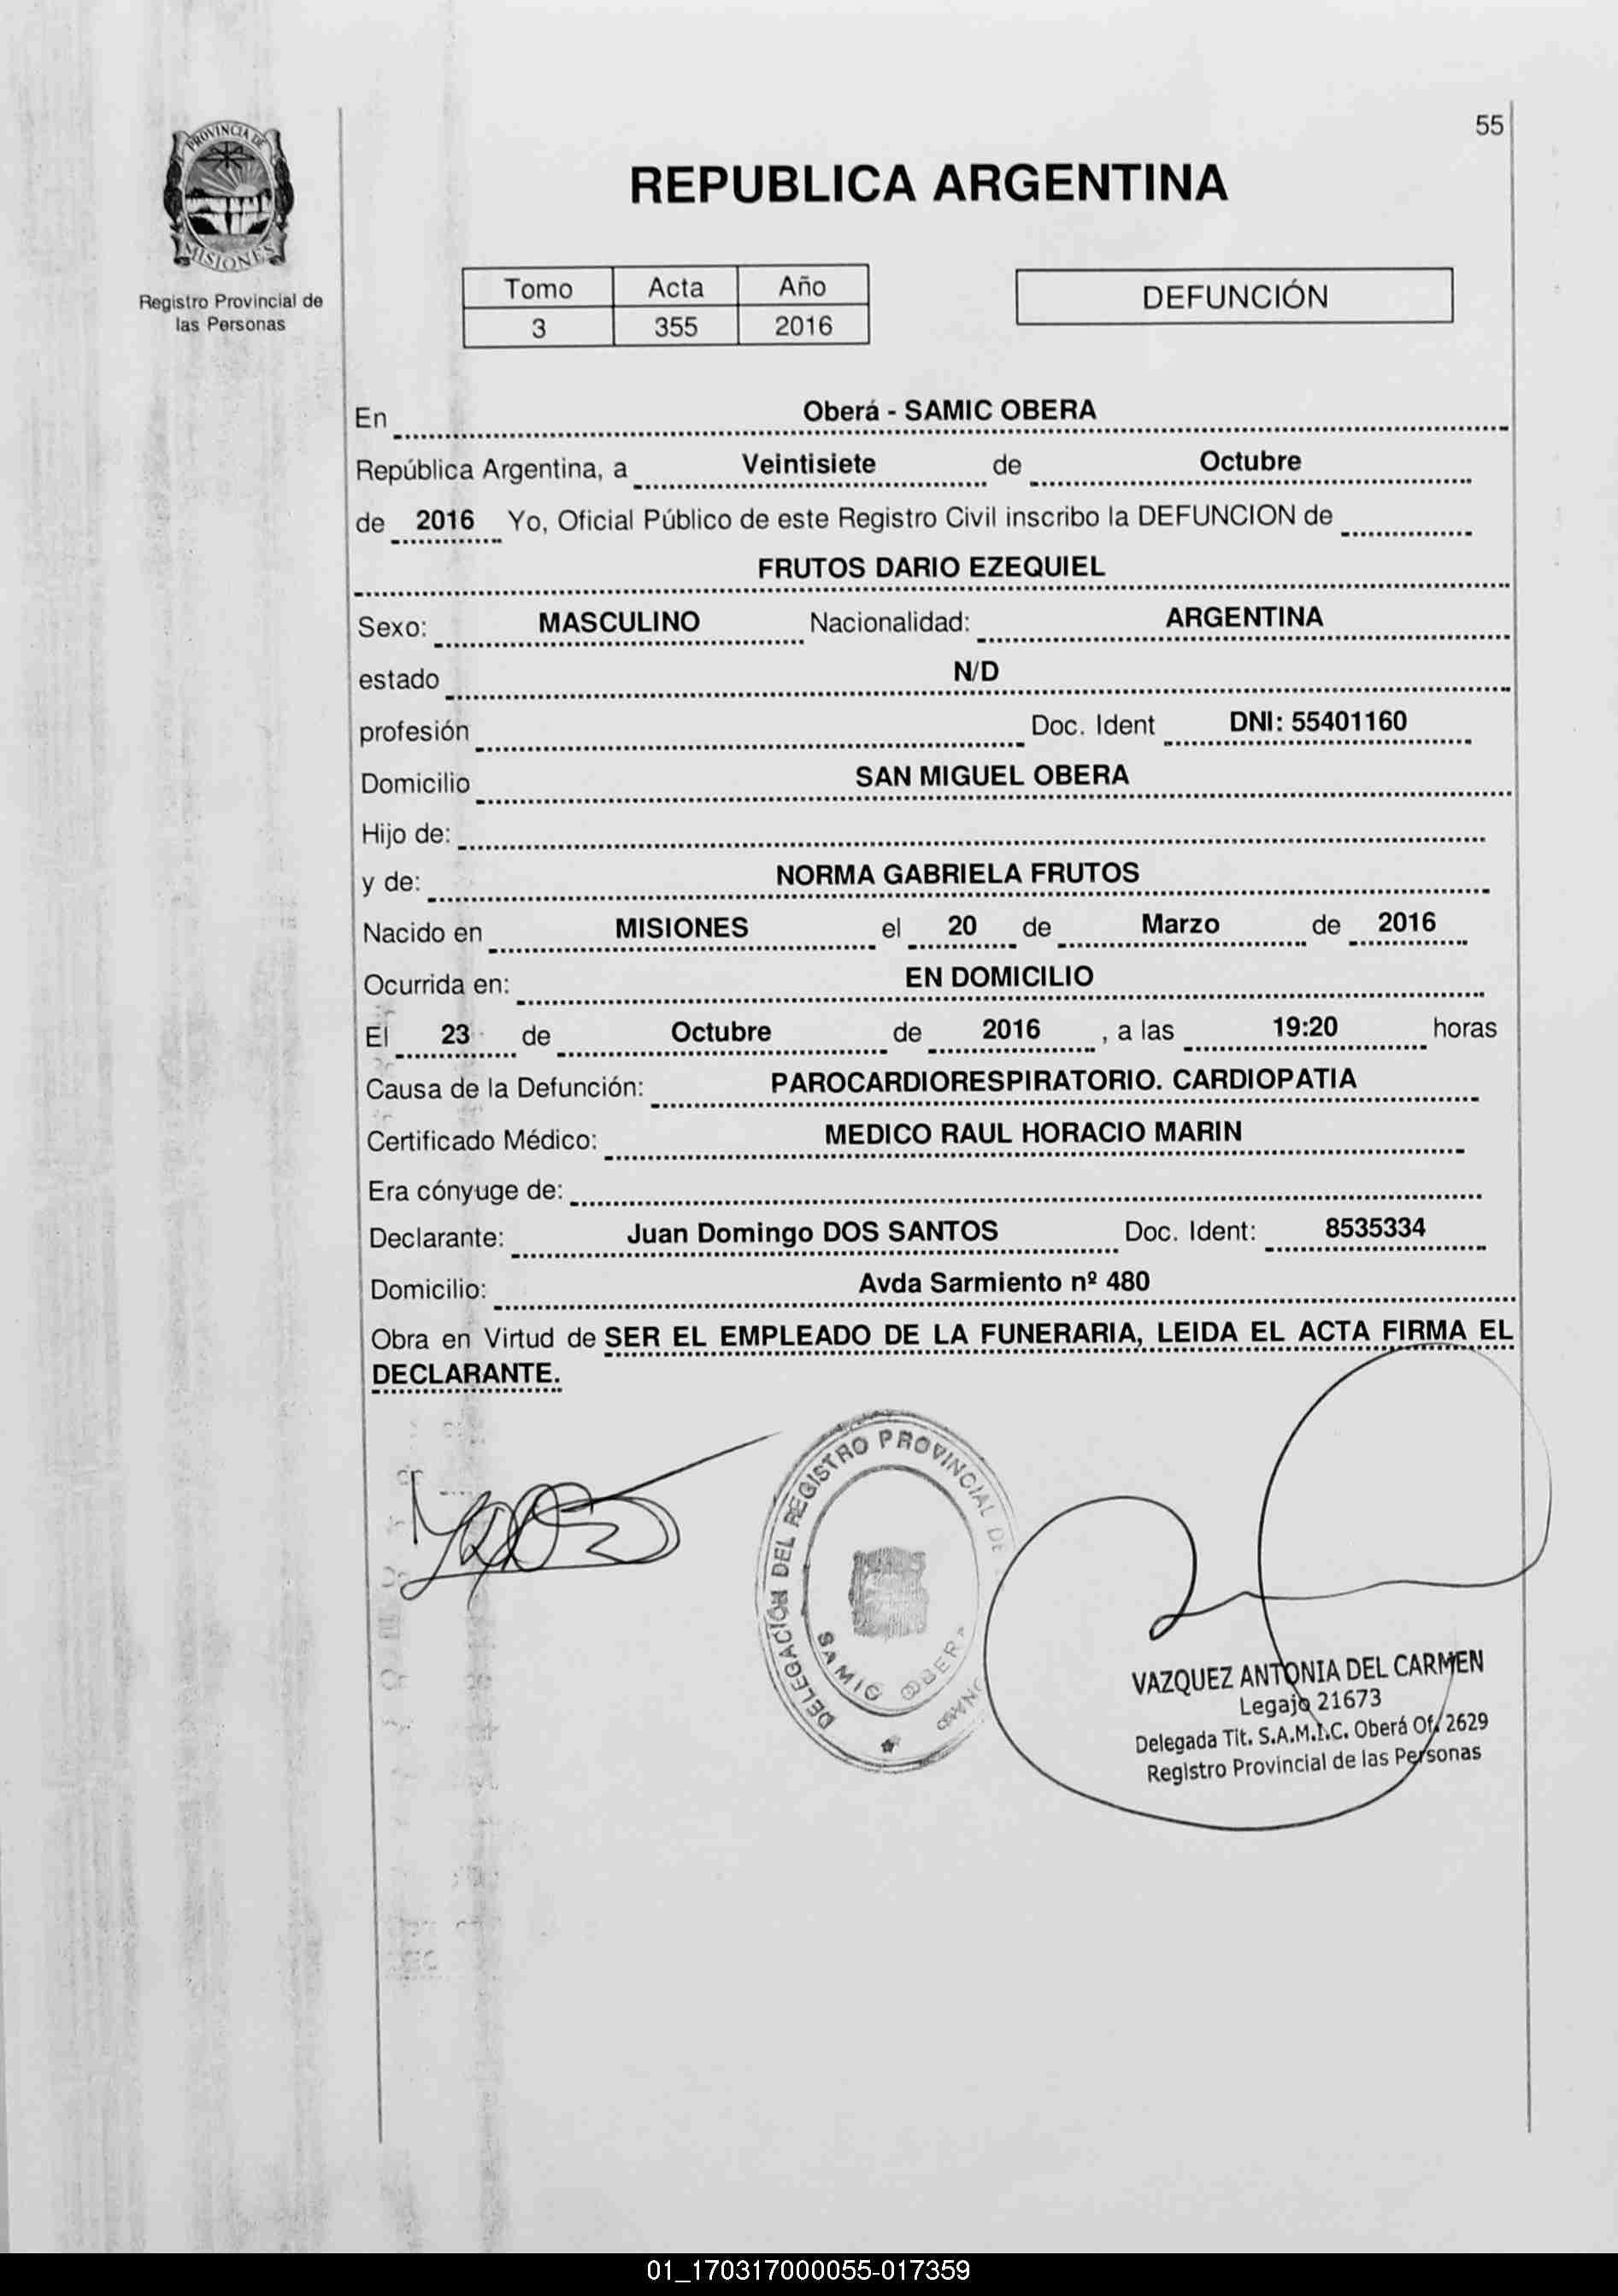 55
PROVINCIA DE
MISIONES
Registro Provincial de
las Personas
REPUBLICA ARGENTINA
Tomo Acta Año
3 355 2016
DEFUNCIÓN
En Oberá - SAMIC OBERA
República Argentina, a Veintisiete de Octubre
de 2016 Yo, Oficial Público de este Registro Civil inscribo la DEFUNCION de
FRUTOS DARIO EZEQUIEL
Sexo: MASCULINO Nacionalidad: ARGENTINA
estado N/D
profesión Doc. Ident DNI: 55401160
Domicilio SAN MIGUEL OBERA
Hijo de:
y de: NORMA GABRIELA FRUTOS
Nacido en MISIONES el 20 de Marzo de 2016
Ocurrida en: EN DOMICILIO
El 23 de Octubre de 2016 , a las 19:20 horas
Causa de la Defunción: PAROCARDIORESPIRATORIO. CARDIOPATIA
Certificado Médico: MEDICO RAUL HORACIO MARIN
Era cónyuge de:
Declarante: Juan Domingo DOS SANTOS Doc. Ident: 8535334
Domicilio: Avda Sarmiento nº 480
Obra en Virtud de SER EL EMPLEADO DE LA FUNERARIA, LEIDA EL ACTA FIRMA EL
DECLARANTE.
DELEGACIÓN DEL REGISTRO PROVINCIAL DE
SAMIC OBERA
VAZQUEZ ANTONIA DEL CARMEN
Legajo 21673
Delegada Tit. S.A.M.I.C. Oberá Of. 2629
Registro Provincial de las Personas
01_170317000055-017359